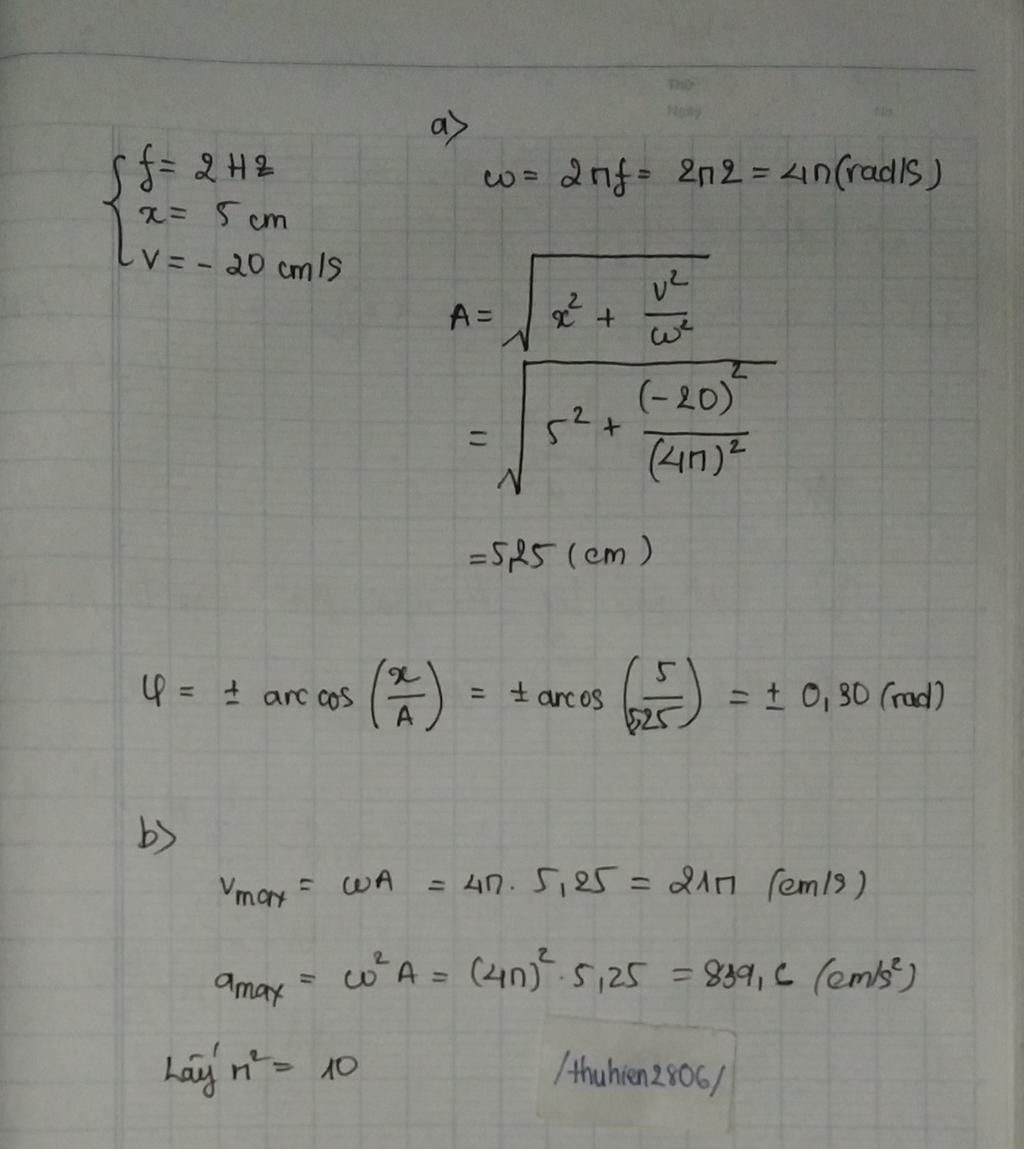 Thứ
Ngày No.
a>
f = 2 Hz
x = 5 cm
v = - 20 cm/s
ω = 2πf = 2π2 = 4π(rad/s)
A = √(x² + v²/ω²)
= √(5² + (-20)²/(4π)²)
= 5,25 (cm)
φ = ± arc cos (x/A) = ± arcos (5/5,25) = ± 0,30 (rad)
b>
vmax = ωA = 4π. 5,25 = 21π (cm/s)
amax = ω²A = (4π)². 5,25 = 839,6 (cm/s²)
Lấy π² = 10
/thuhien2806/